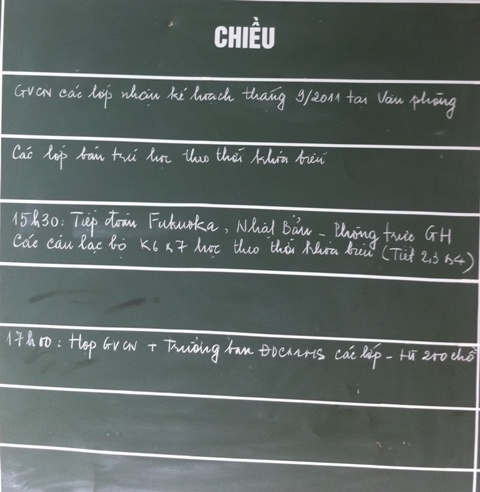 CHIỀU
GVCN các lớp nhận kế hoạch tháng 9/2011 tại Văn phòng
Các lớp bán trú học theo thời khóa biểu
15h30: Tiếp đoàn Fukuoka, Nhật Bản - Phòng trực GH
Các câu lạc bộ K6 &7 học theo thời khóa biểu (Tiết 2,3 &4)
17h00: Họp GVCN + Trưởng ban ĐDCMHS các lớp - HT 200 chỗ